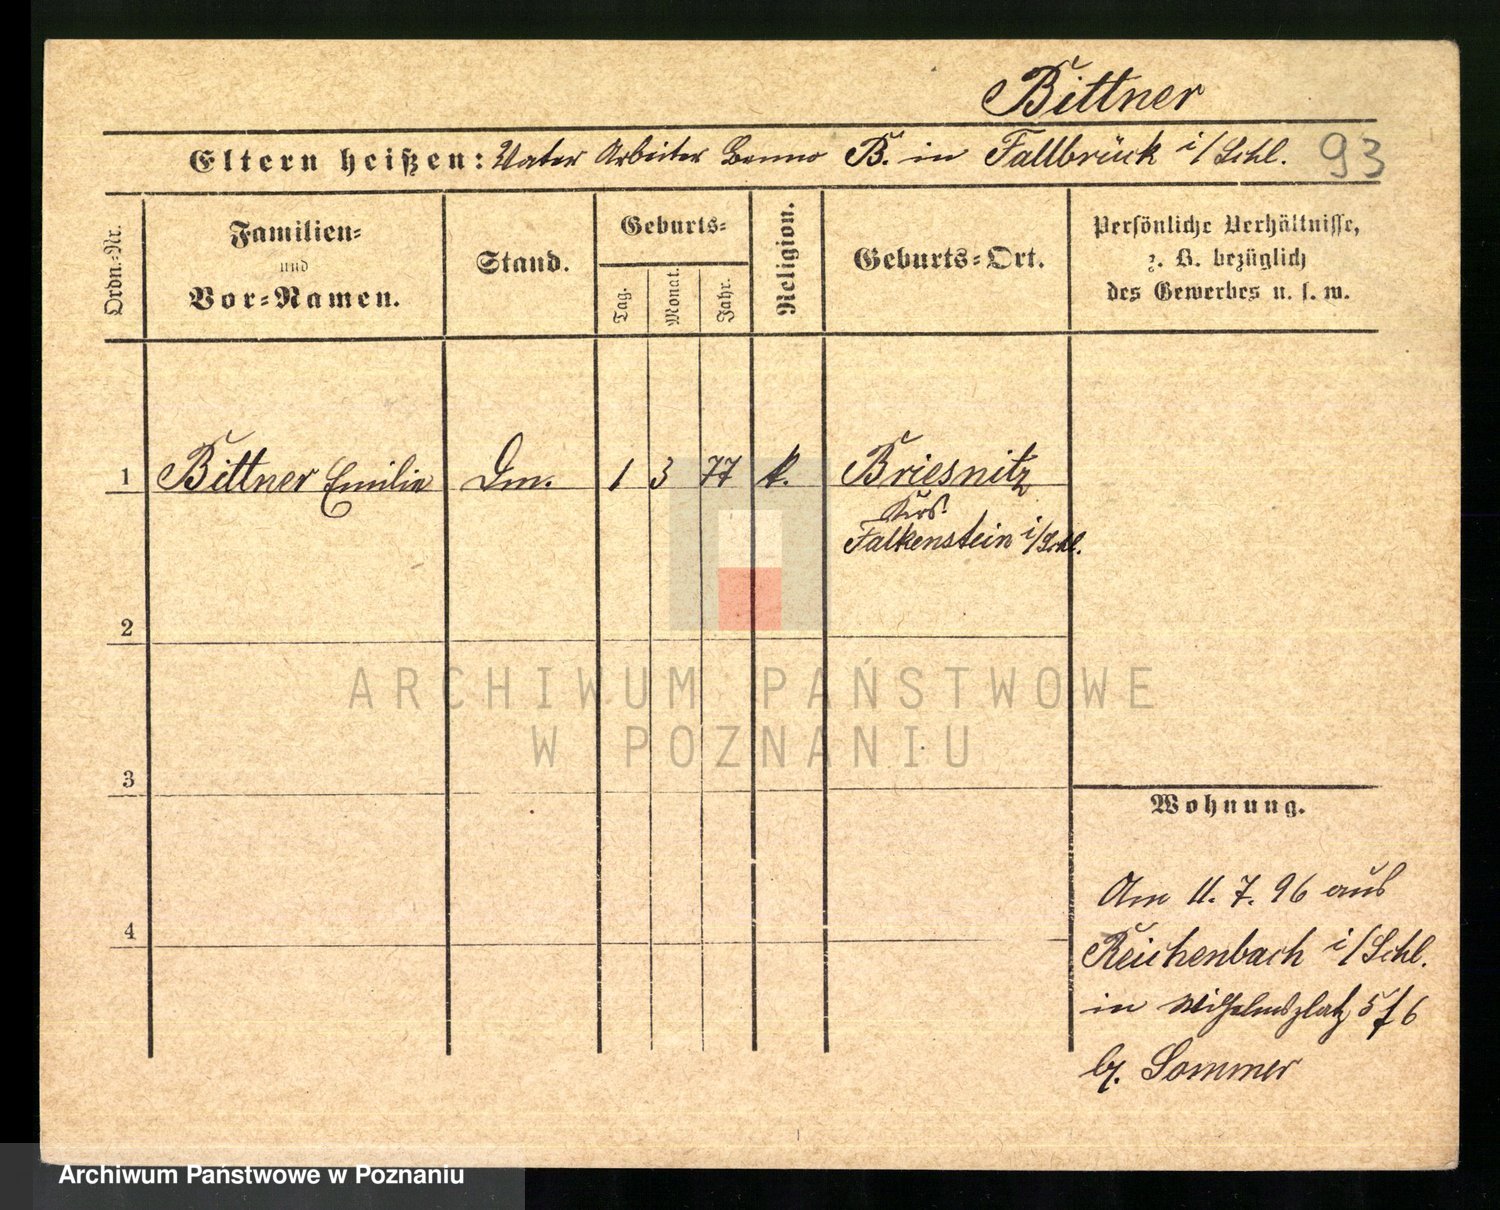 Bittner
Eltern heißen: Vater Arbeiter Benno B. in Fallbrück i/Schl. 93
Ordn.-Nr.
Familien-
und
Vor-Namen.
Stand.
Geburts-
Tag.
Monat.
Jahr.
Religion.
Geburts-Ort.
Persönliche Verhältnisse,
z. B. bezüglich
des Gewerbes u. s. w.
1 Bittner Emilie Dm. 1 3 77 k. Briesnitz
Krs.
Falkenstein i/Schl.
2
3
4
Wohnung.
Am 11. 7. 96 aus
Reichenbach i/Schl.
in Wilhelmsplatz 5/6
b. Sommer
ARCHIWUM PAŃSTWOWE
W POZNANIU
Archiwum Państwowe w Poznaniu